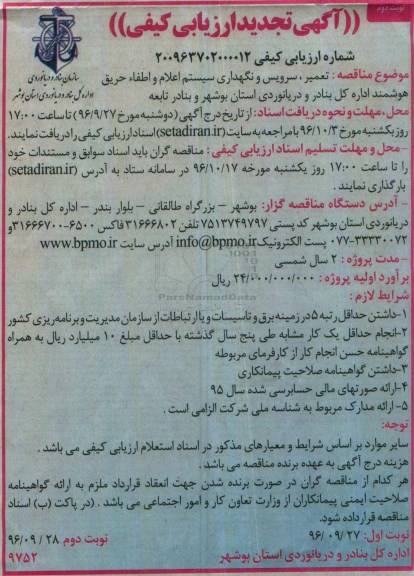 نوبت دوم
((آگهی تجدید ارزیابی کیفی))
شماره ارزیابی کیفی ۲۰۰۹۶۳۷۰۲۰۰۰۰۱۲
سازمان بنادر و دریانوردی
اداره کل بنادر و دریانوردی استان بوشهر
موضوع مناقصه : تعمیر ، سرویس و نگهداری سیستم اعلام و اطفاء حریق
هوشمند اداره کل بنادر و دریانوردی استان بوشهر و بنادر تابعه
محل، مهلت و نحوه دریافت اسناد: از تاریخ درج آگهی (دوشنبه مورخ ۹۶/۹/۲۷) تا ساعت ۱۷:۰۰
روز یکشنبه مورخ ۹۶/۱۰/۳ با مراجعه به سایت (setadiran.ir) اسناد ارزیابی کیفی را دریافت نمایند.
- محل و مهلت تسلیم اسناد ارزیابی کیفی : مناقصه گران باید اسناد سوابق و مستندات خود
را تا ساعت ۱۷:۰۰ روز یکشنبه مورخه ۹۶/۱۰/۱۷ در سامانه ستاد به آدرس (setadiran.ir)
بارگذاری نمایند.
- آدرس دستگاه مناقصه گزار: بوشهر - بزرگراه طالقانی - بلوار بندر - اداره کل بنادر و
دریانوردی استان بوشهر کد پستی ۷۵۱۳۷۴۹۷۹۷ تلفن ۳۱۶۶۶۸۰۲ فاکس ۶۵۰۰-۳۱۶۶۶۷۰۰ و
۰۷۷-۳۳۳۳۰۰۷۲ پست الکترونیک info@bpmo.ir آدرس سایت www.bpmo.ir
- مدت پروژه : ۲ سال شمسی
برآورد اولیه پروژه : ۲۴/۰۰۰/۰۰۰/۰۰۰ ریال
ParsNamadData
شرایط لازم :
۱-داشتن حداقل رتبه ۵ در زمینه برق و تاسیسات و یا ارتباطات از سازمان مدیریت و برنامه ریزی کشور
۲-انجام حداقل یک کار مشابه طی پنج سال گذشته با حداقل مبلغ ۱۰ میلیارد ریال به همراه
گواهینامه حسن انجام کار از کارفرمای مربوطه
۳-داشتن گواهینامه صلاحیت پیمانکاری
۴-ارائه صورتهای مالی حسابرسی شده سال ۹۵
۵- ارائه مدارک مربوط به شناسه ملی شرکت الزامی است .
توجه:
سایر موارد بر اساس شرایط و معیارهای مذکور در اسناد استعلام ارزیابی کیفی می باشد .
هزینه درج آگهی به عهده برنده مناقصه می باشد .
هر کدام از مناقصه گران در صورت برنده شدن جهت انعقاد قرارداد ملزم به ارائه گواهینامه
صلاحیت ایمنی پیمانکاران از وزارت تعاون کار و امور اجتماعی می باشد . (در پاکت (ب) اسناد
مناقصه قرارداده شود.
نوبت اول: ۲۷ /۰۹ /۹۶
نوبت دوم ۲۸ /۹۶/۰۹
اداره کل بنادر و دریانوردی استان بوشهر
۹۷۵۲